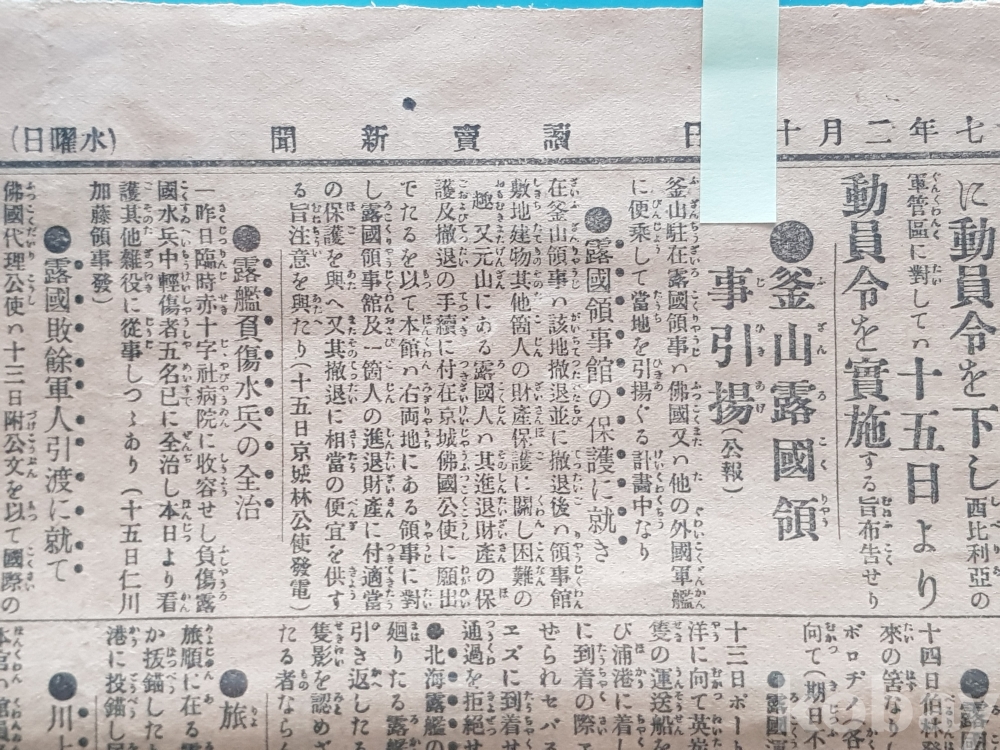 七年二月十日
讀賣新聞
(水曜日)
に動員令を下し西比利亞の
軍管區に對してハ十五日より
動員令を實施する旨布告せり
●釜山露國領
事引揚(公報)
釜山駐在露國領事ハ佛國又ハ他の外國軍艦
に便乘して當地を引揚ぐる計畫中なり
●露國領事館の保護に就き
在釜山領事ハ該地撤退並に撤退後ハ領事館
敷地建物其他箇人の財產保護に關し困難の
趣又元山にある露國人ハ其進退財產の保
護反撤退の手續に付在京城佛國公使に願出
でたるを以て本館ハ右兩地にある領事に對
し露國領事館及一箇人の進退財產に付適當
の保護を與へ又其撤退に相當の便宜を供す
る旨注意を與たり(十五日京城林公使發電)
●露艦負傷水兵の全治
一昨日臨時赤十字社病院に收容せし負傷露
國水兵中輕傷者五名已に全治し本日より看
護其他雜役に從事しつゝあり(十五日仁川
加藤領事發)
●露國敗餘軍人引渡に就て
佛國代理公使ハ十三日附公文を以て國際の
●露國
十四日伯林
來の筈なり
ボロヂノ客
向て(期日不
●露國
十三日ポー
洋に向て英
隻の運送船を
び浦港に着
に到着の際
せられセバ
エズに到着せ
通過を拒絕せ
●北海露艦の
廻りたる露
引き返したる
隻影を認めざ
たる者ならん
●旅
旅順に在る
か拔錨した
港に投錨し
●川上
本官ハ館員